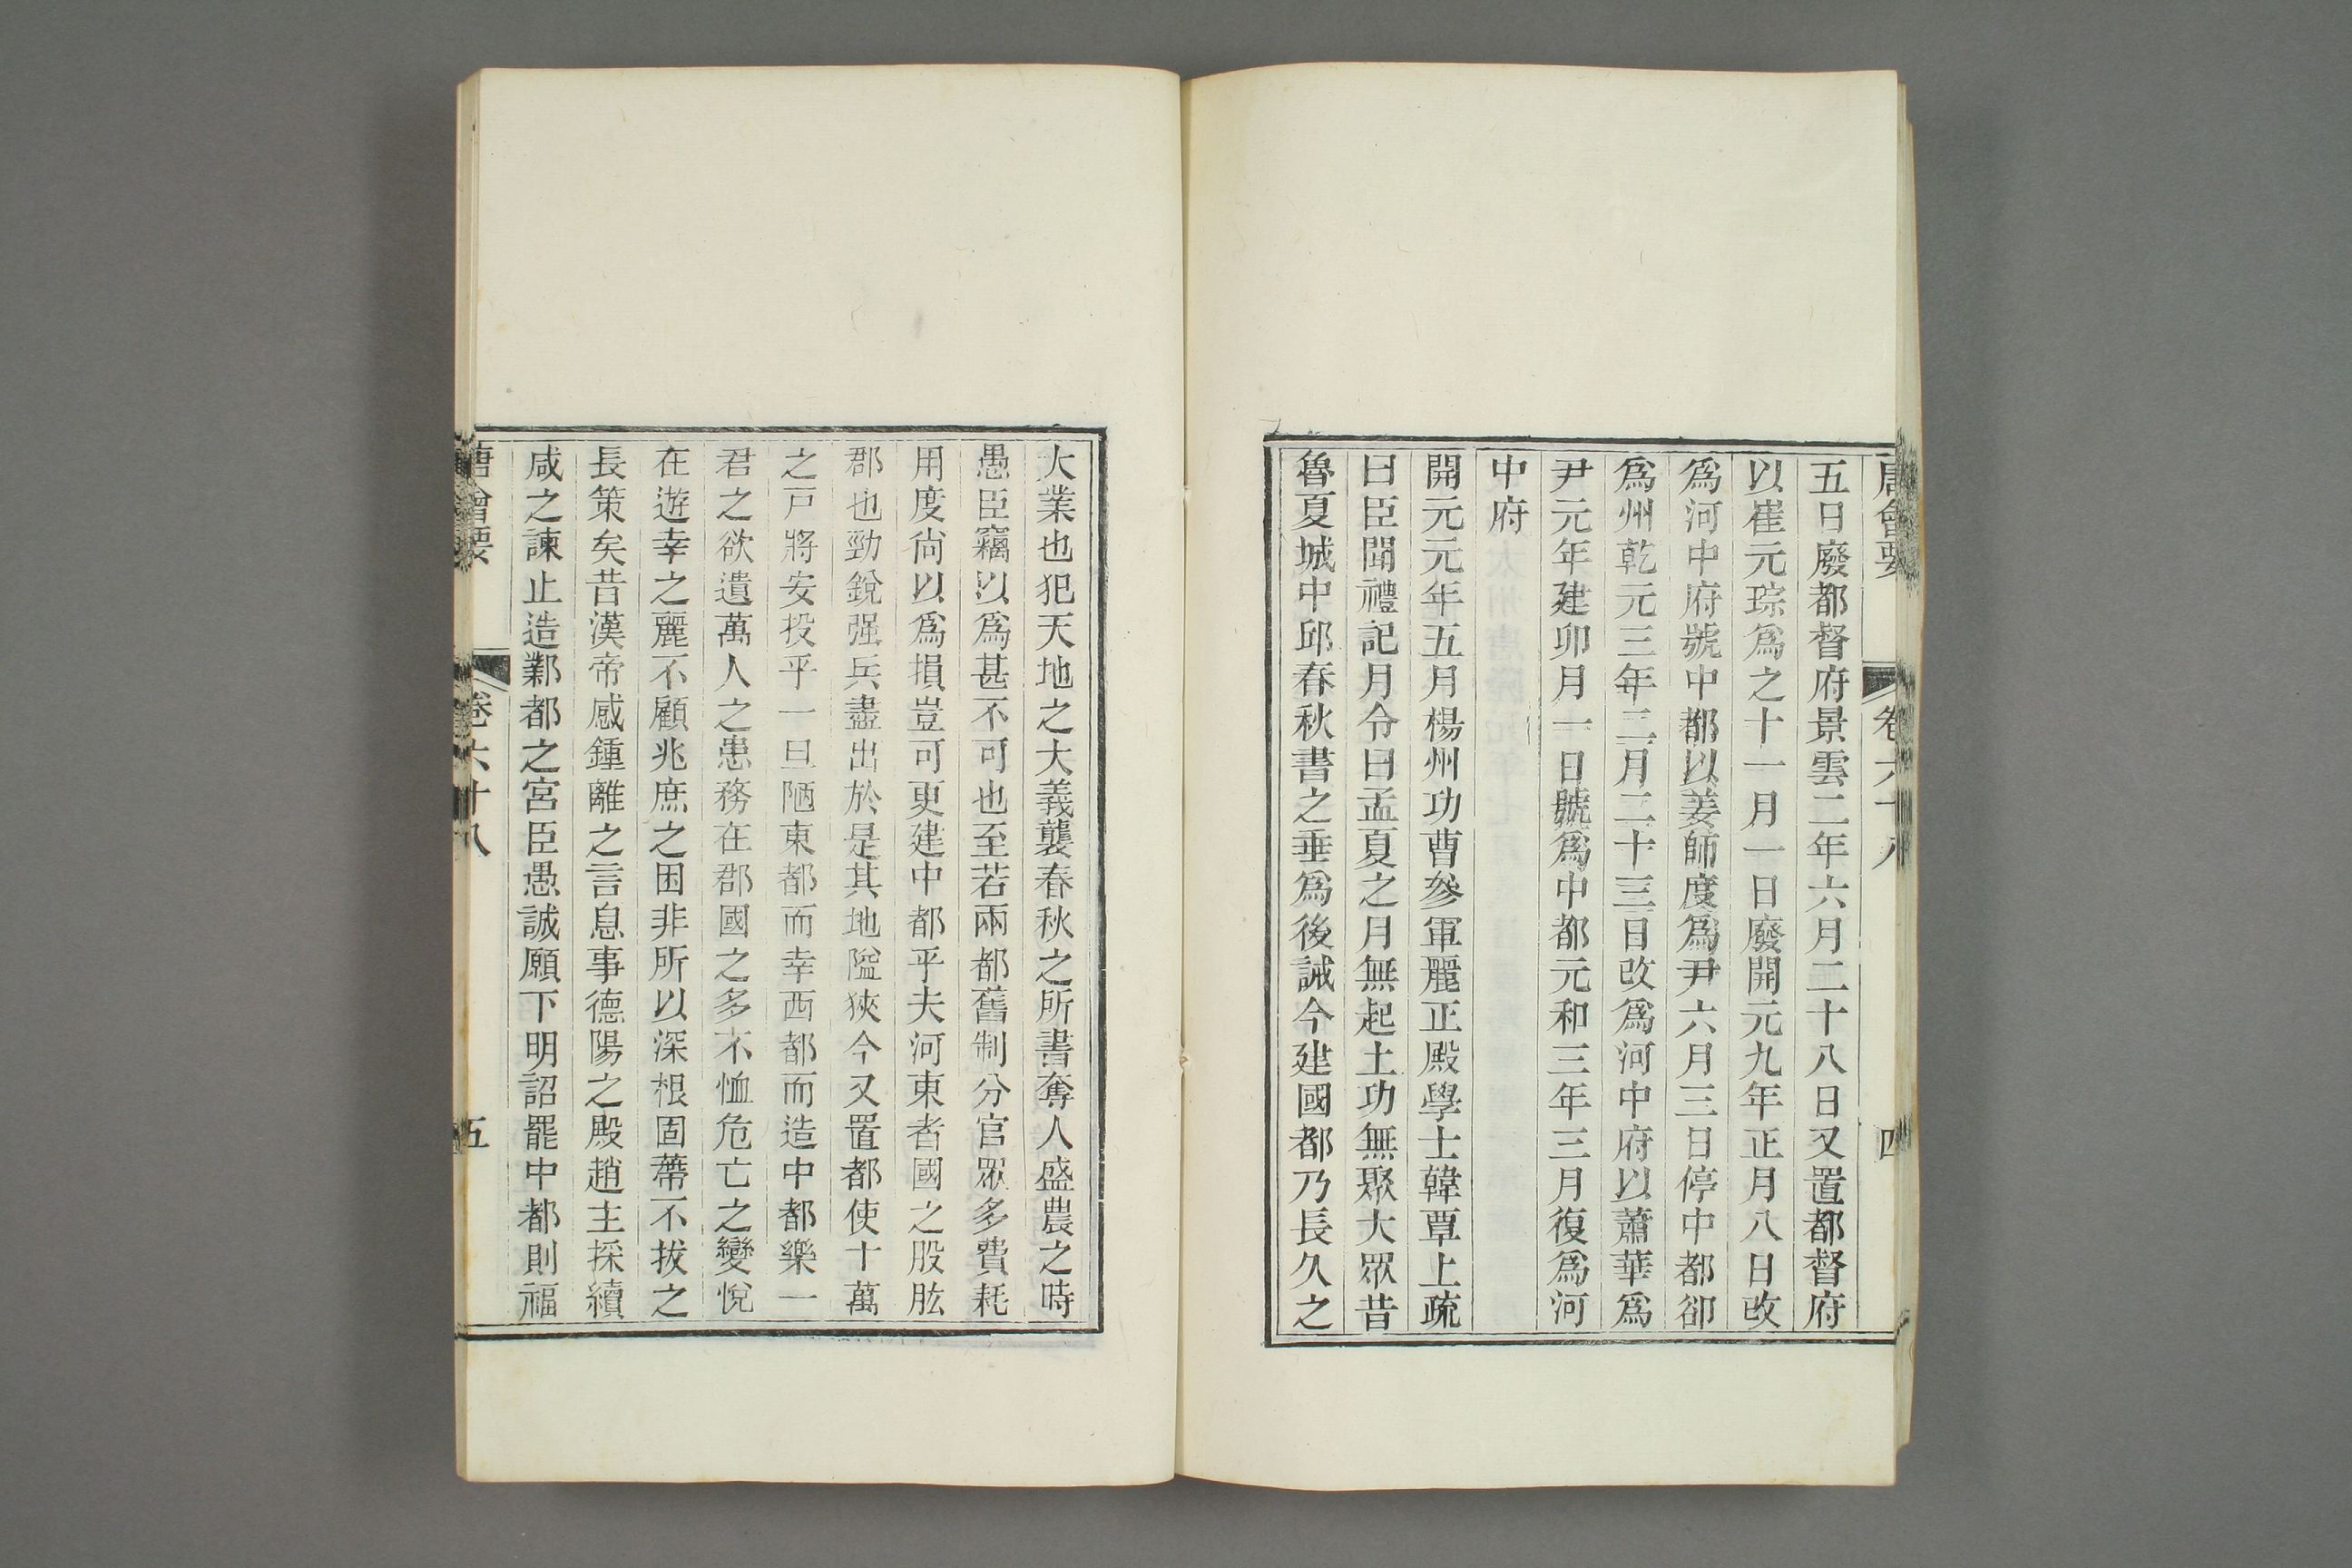 唐會要 卷六十八 四
五日廢都督府景雲二年六月二十八日又置都督府
以崔元琮爲之十一月一日廢開元九年正月八日改
爲河中府號中都以姜師度爲尹六月三日停中都卻
爲州乾元三年三月二十三日改爲河中府以蕭華爲
尹元年建卯月一日號爲中都元和三年三月復爲河
中府
開元元年五月楊州功曹參軍麗正殿學士韓覃上疏
曰臣聞禮記月令曰孟夏之月無起土功無聚大眾昔
魯夏城中邱春秋書之垂爲後誡今建國都乃長久之
大業也犯天地之大義襲春秋之所書奪人盛農之時
愚臣竊以爲甚不可也至若兩都舊制分官眾多費耗
用度尚以爲損豈可更建中都乎夫河東者國之股肱
郡也勁銳强兵盡出於是其地隘狹今又置都使十萬
之戸將安投乎一旦陋東都而幸西都而造中都樂一
君之欲遺萬人之患務在郡國之多不恤危亡之變悅
在遊幸之麗不顧兆庶之困非所以深根固蔕不拔之
長策矣昔漢帝感鍾離之言息事德陽之殿趙主採續
咸之諫止造鄴都之宮臣愚誠願下明詔罷中都則福
唐會要 卷六十八 五